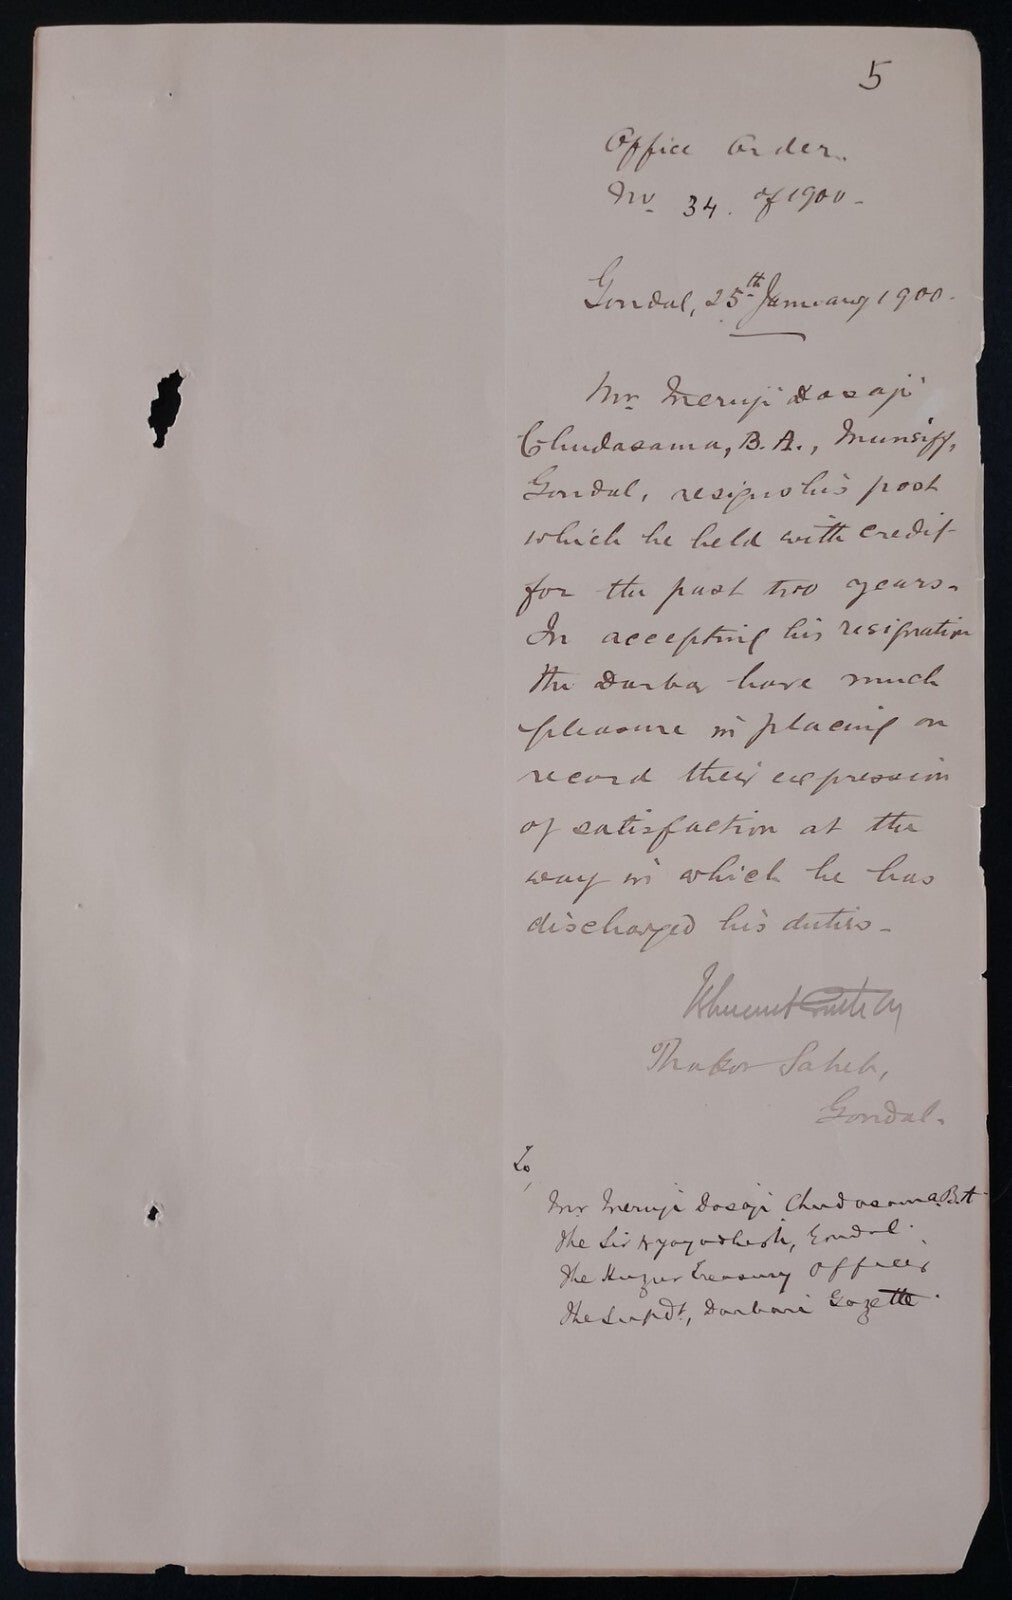 5
Office Order.
No. 34. of 1900.
Gondal, 25th January 1900.
Mr. Meruji Dosaji
Chudasama, B.A., Munsiff,
Gondal, resigns his post
which he held with credit
for the past two years.
In accepting his resignation
the Darbar have much
pleasure in placing on
record their expression
of satisfaction at the
way in which he has
discharged his duties.
Thakor Saheb,
Gondal.
To,
Mr Meruji Dosaji Chudasama B.A.
The Sir Nyayadhish, Gondal.
The Huzur Treasury Officer
The Supdt, Darbari Gazette.